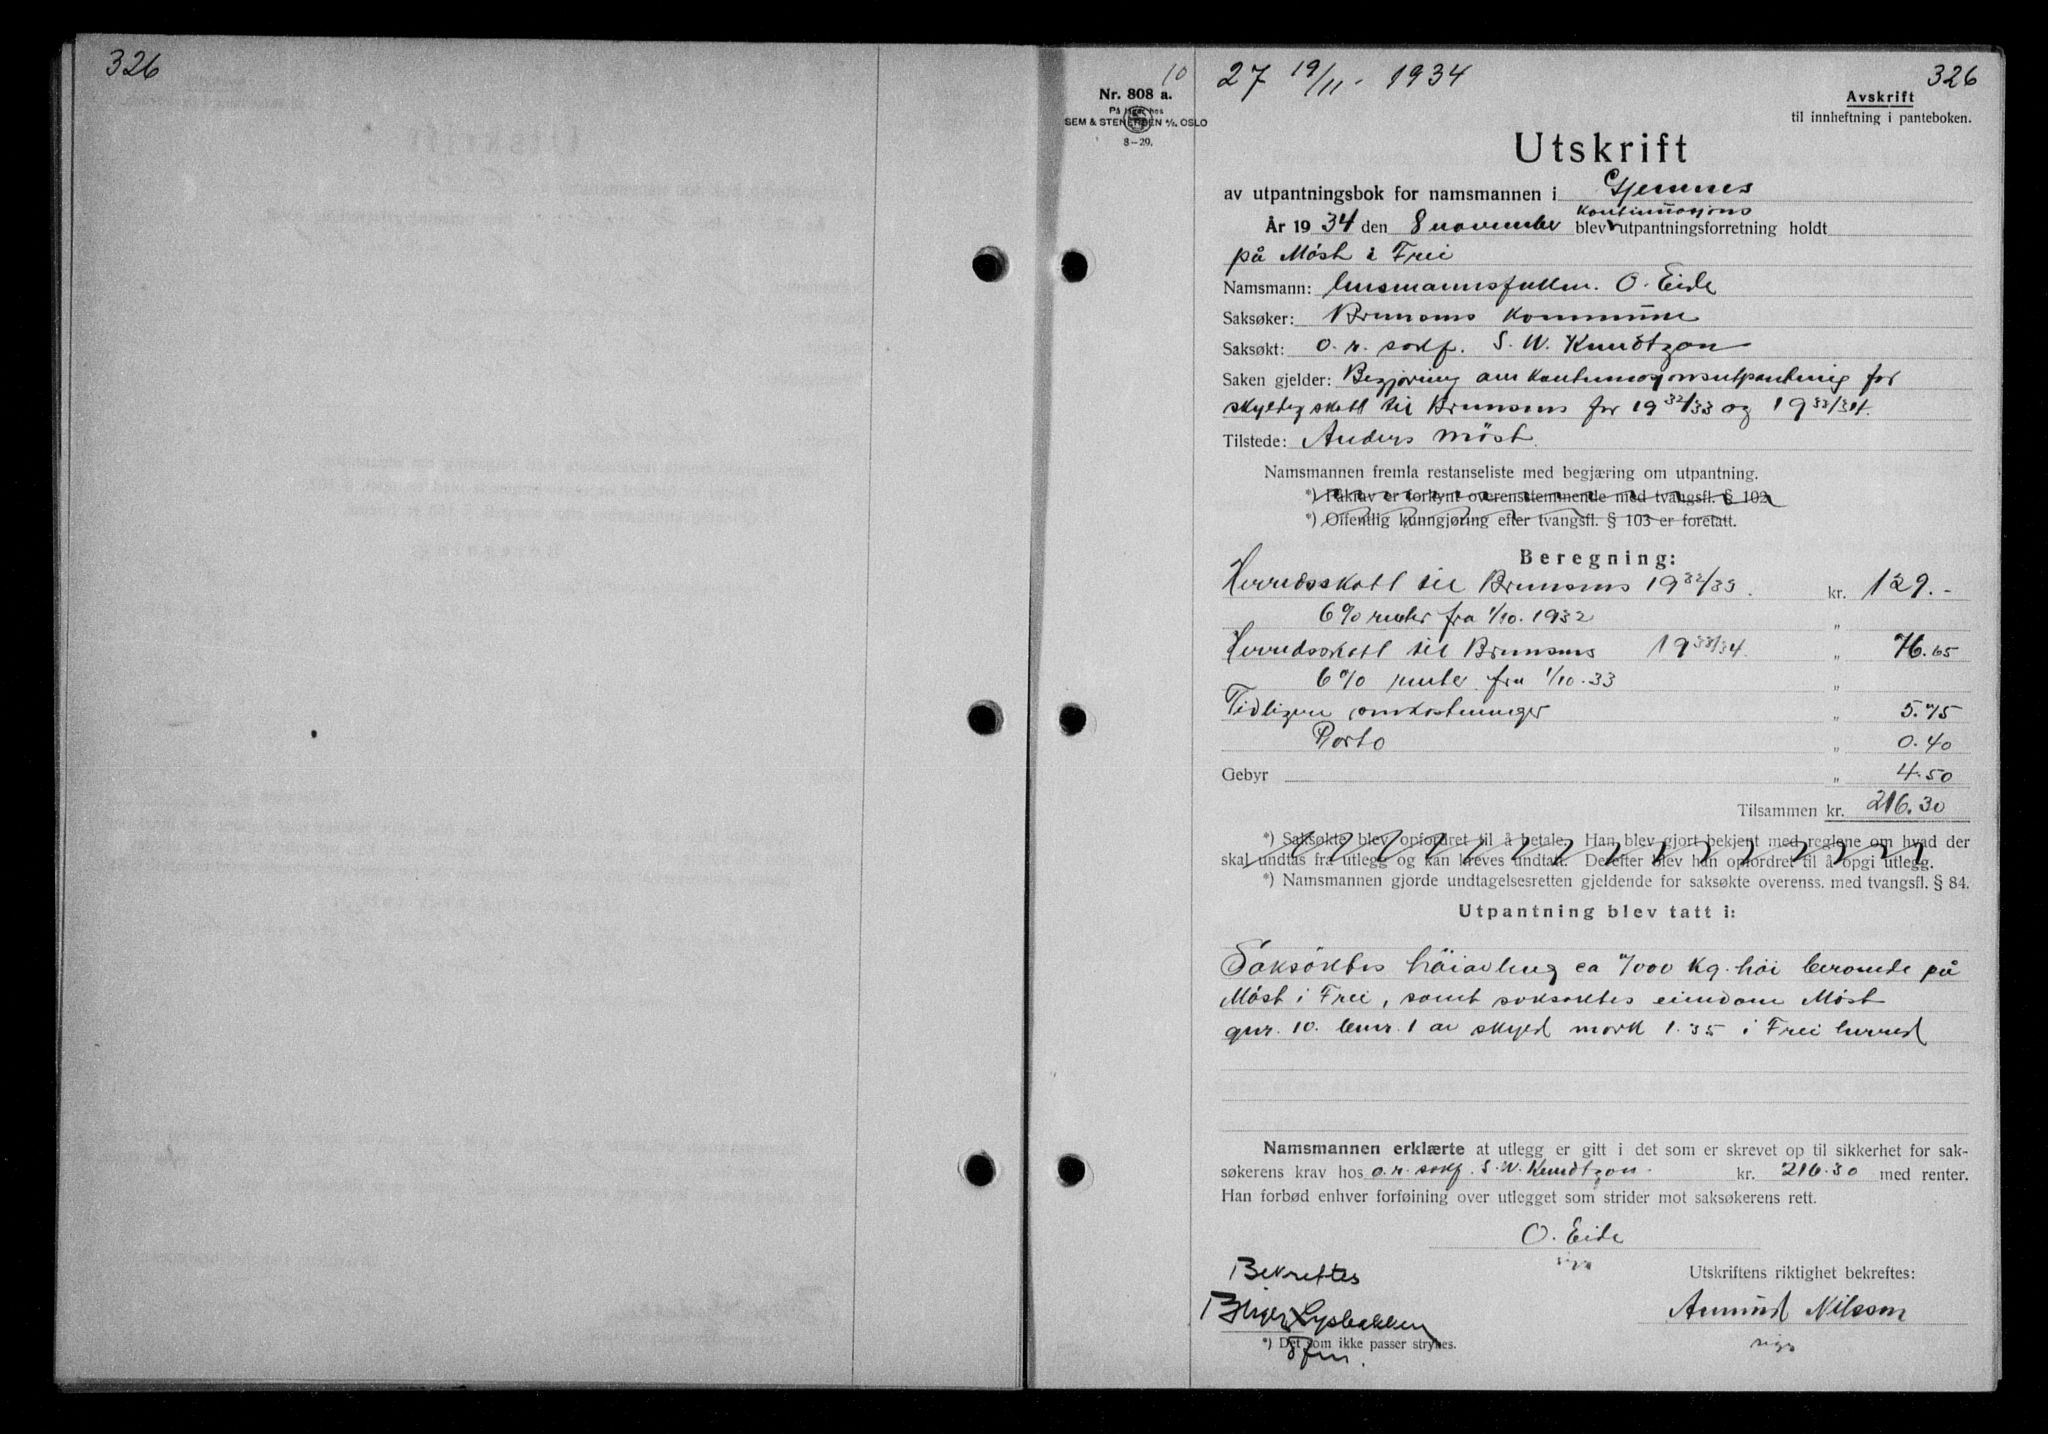 326
10
27 19/11. 1934
326
Nr. 808 a.
På lager hos
SEM & STENERSEN A/S, OSLO
8-29.
Avskrift
til innheftning i panteboken.
Utskrift
av utpantningsbok for namsmannen i Gjemnes
kontinuasjons
År 1934 den 8 november blev utpantningsforretning holdt
på Möst i Frei
Namsmann: lensmannsfullm. O. Eide
Saksøker: Bremsnes Kommune
Saksøkt: o.r. sakf. S. W. Knudtzon
Saken gjelder: Begjæring om kontinuasjonsutpantning for
skyldig skatt til Bremsnes for 1932/33 og 1933/34.
Tilstede: Anders Möst.
Namsmannen fremla restanseliste med begjæring om utpantning.
*) Påkrav er forkynt overensstemmende med tvangsfl. § 102
*) Offentlig kunngjøring efter tvangsfl. § 103 er foretatt.
Beregning:
Herredsskatt til Bremsnes 1932/33. kr. 129.-
6% renter fra 1/10. 1932 "
Herredsskatt til Bremsnes 1933/34. " 76.65
6% renter fra 1/10.33 "
Tidligere omkostninger " 5.75
Porto " 0.40
Gebyr " 4.50
Tilsammen kr. 216.30
*) Saksøkte blev opfordret til å betale. Han blev gjort bekjent med reglene om hvad der
skal undtas fra utlegg og kan kreves undtatt. Derefter blev han opfordret til å opgi utlegg.
*) Namsmannen gjorde undtagelsesretten gjeldende for saksøkte overenss. med tvangsfl. § 84.
Utpantning blev tatt i:
Saksöktes höiavling ca 7000 kg. höi beroende på
Möst i Frei, samt saksøktes eiendom Möst
gnr. 10. bnr. 1 av skyld mark 1.35 i Frei herred
Namsmannen erklærte at utlegg er gitt i det som er skrevet op til sikkerhet for sak-
søkerens krav hos o.r. sakf. S. W. Knudtzon. kr. 216.30 med renter.
Han forbød enhver forføining over utlegget som strider mot saksøkerens rett.
O. Eide
sign
Bekreftes
Utskriftens riktighet bekreftes:
Birger Lysbakken
Amund Nilsson
*) Det som ikke passer strykes.
sign